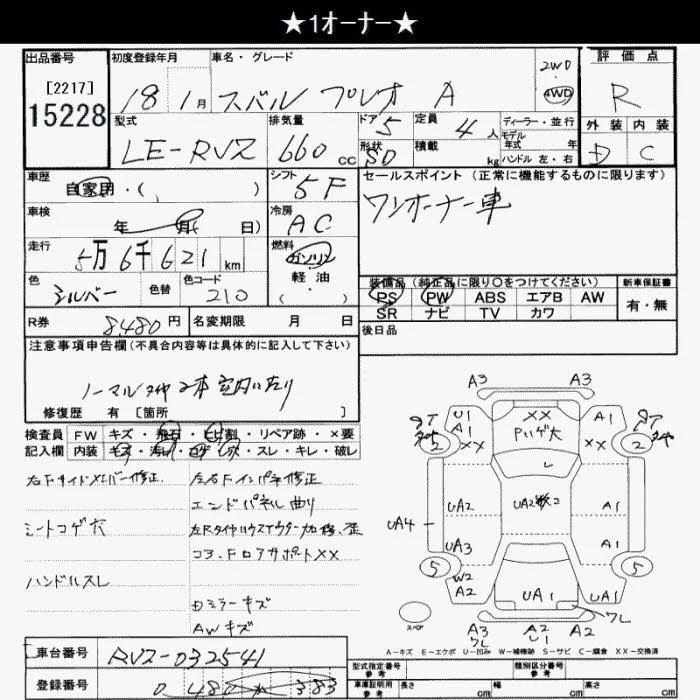 ★1オーナー★
出品番号
[2217]
15228
初度登録年月
18 1月
車名・グレード
スバル プレオ A
2WD
4WD
評価点
R
型式
LE-RV2
排気量
660 cc
ドア 5
形状 SD
定員 4人
積載 kg
ディーラー・並行
モデル
年式 年
ハンドル 左・右
外装 内装
D C
車歴
自家用・( )
シフト
5F
セールスポイント (正常に機能するものに限ります)
ワンオーナー車
車検
年 月( 日)
冷房
AC
走行
5万6千621km
燃料
ガソリン
軽・油
( )
色
シルバー
色替
色コード
210
装備品 (純正品に限り○をつけてください)
PS PW ABS エアB AW
SR ナビ TV カワ
新車保証書
有・無
R券 8,480円
名変期限 月 日
後日品
注意事項申告欄(不具合内容等は具体的に記入して下さい)
ノーマルタイヤ2本室内に有り
修復歴 有 [箇所 ]
検査員
記入欄
FW キズ・飛石・ヒビ割・リペア跡・×要
内装 キズ・汚れ・コゲ・穴・スレ・キレ・破レ
右Fサイドメンバー修正
左右Fインパネ修正
エンドパネル曲り
シートコゲ穴
コア、Fロアサポート××
ハンドルスレ
ミラーキズ
AWキズ
A3 A3
U1
A1
××
××
Pいゲ大
A1
××
2
2
L
UA2
UA2
A1
UA4
UA3
A1
5
5
W2
A2
UA1
UA1
ワレ
スペア
A3
ワレ
A2
U1
A2
A-キズ E-エクボ U-凹み W-補修跡 S-サビ C-腐食 ××-交換済
車台番号
RV2-032541
登録番号
型式指定番号
参考
類別区分番号
参考
車庫証明用
参考
長さ cm
幅 cm
高さ cm